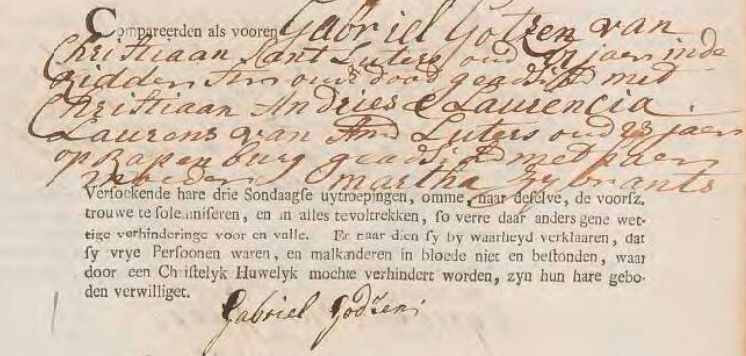 Compareerden als vooren Gabriel Gotzen van
Christiaan Sant Luters oud jaer inde
Ridder ouds dood geadsist met
Christiaan Andries & Laurencia
Laurens van And Luters oud 23 jaer
op Rapenburg geadsist met haer
Martha Zybrants
Versoekende hare drie Sondaagse uytroepingen, omme naar deselve, de voorsz.
trouwe te solemniseren, en in alles te voltrekken, so verre daar anders gene wet-
tige verhinderinge voor en valle. En naar dien sy by waarheyd verklaaren, dat
sy vrye Persoonen waren, en malkanderen in bloede niet en bestonden, waar
door een Christelyk Huwelyk mochte verhindert worden, zyn hun hare gebo-
den verwilliget.
Gabriel Godzen